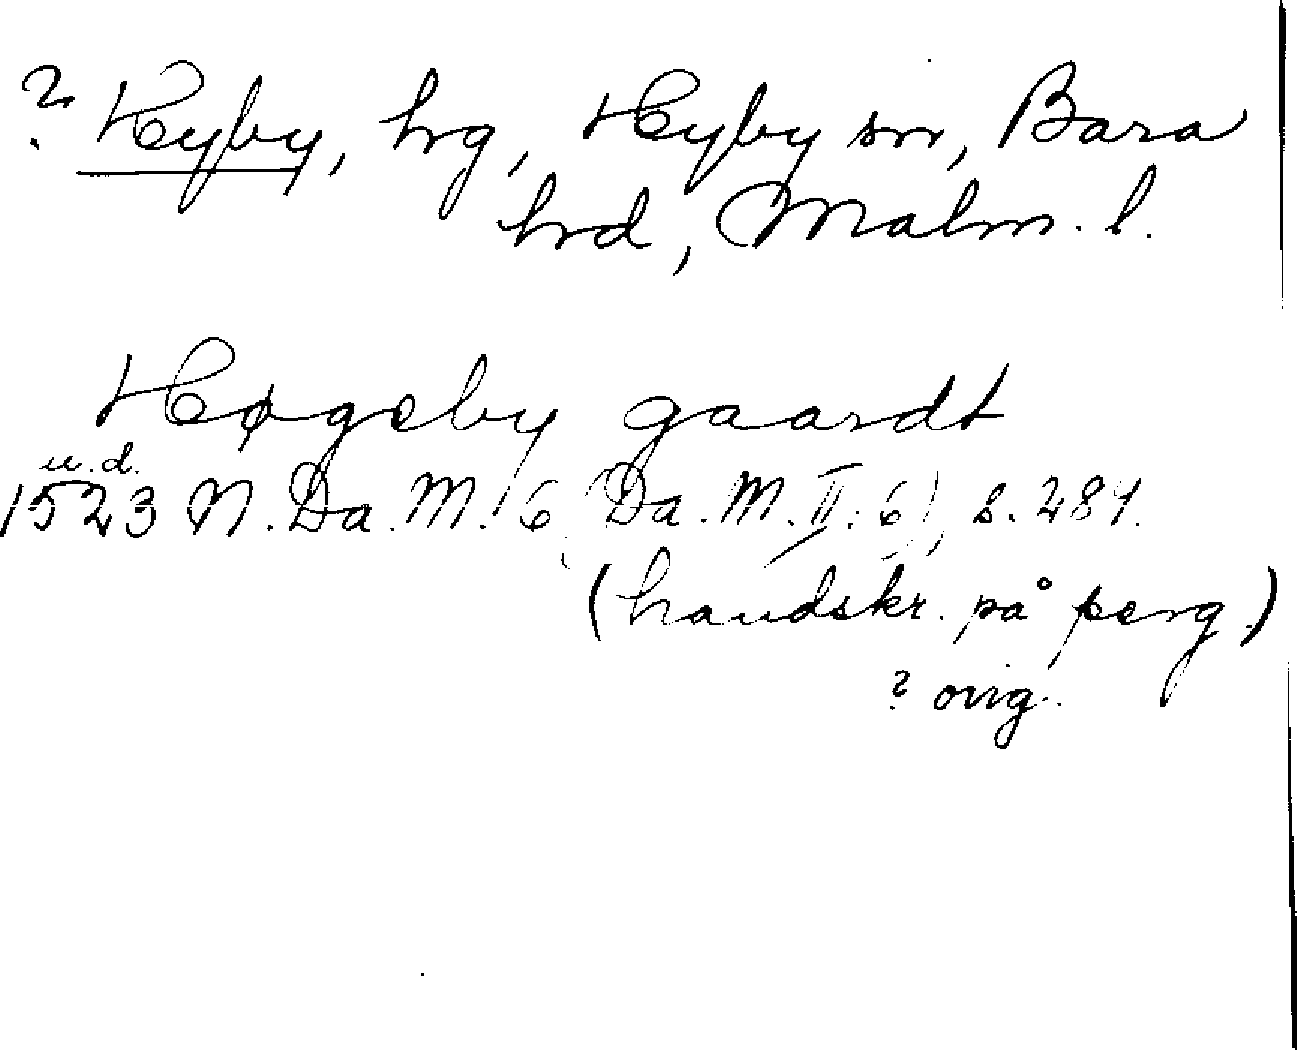 ? Hyby, hrg, Hyby sn, Bara
hrd, Malm. l.
Høgeby gaardt
u.d.
1523 N. Da. M. 6 (Da. M. II: 6), s. 281.
(handskr. på perg.)
? orig.